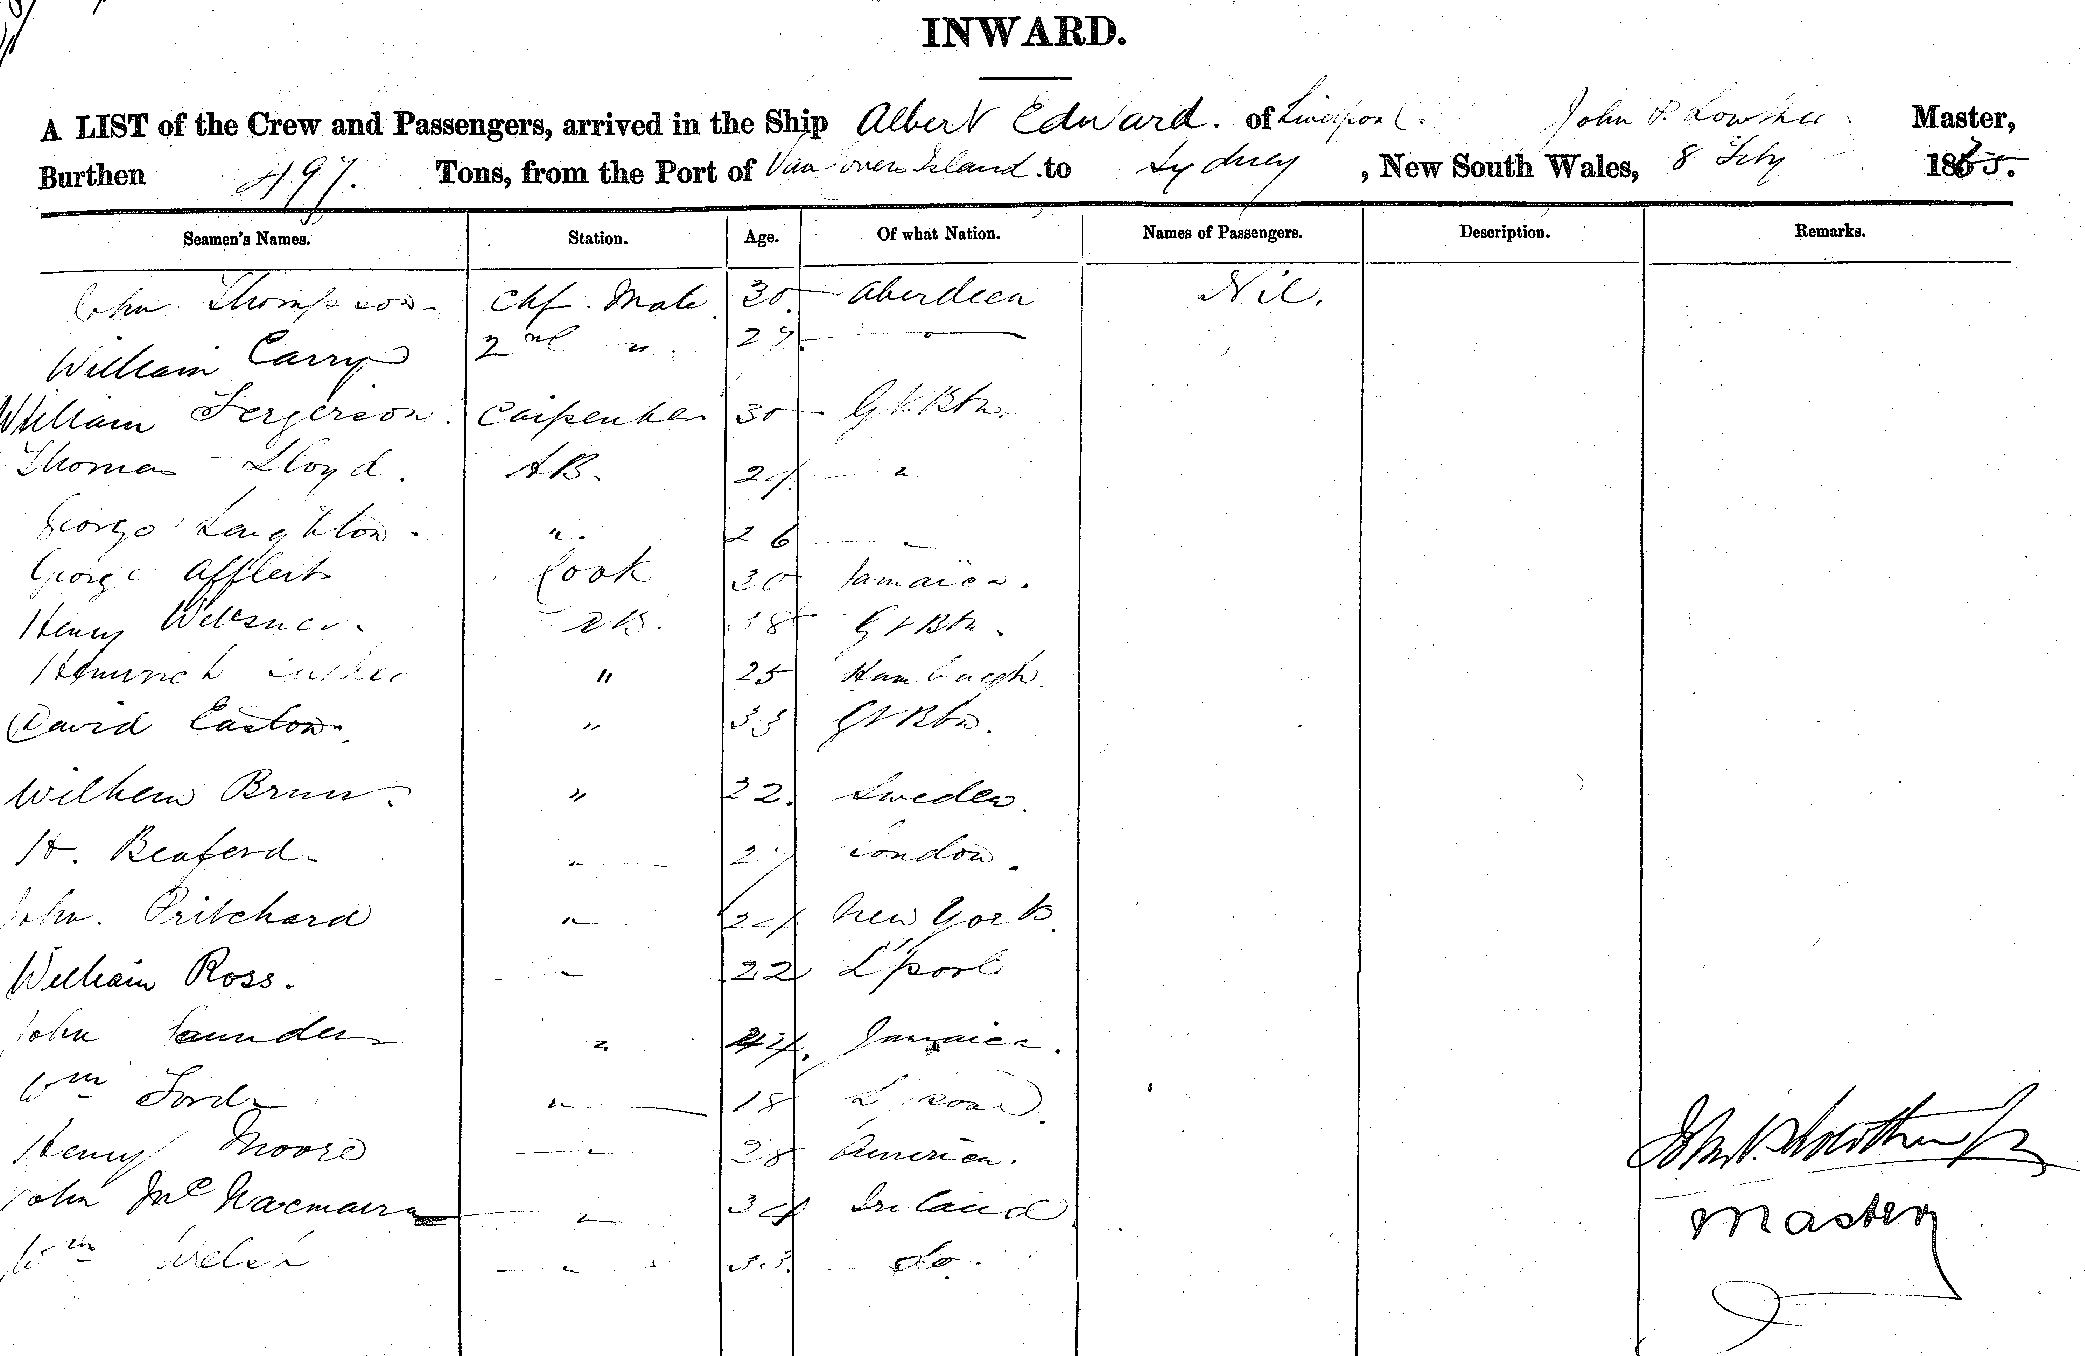 INWARD.
A LIST of the Crew and Passengers, arrived in the Ship Albert Edward. of Liverpool. John P. Master,
Burthen 497. Tons, from the Port of Van couver Island. to Sydney, New South Wales, 8 Feby 1865.
Seamen's Names. Station. Age. Of what Nation. Names of Passengers. Description. Remarks.
John Thompson Chf. Mate 30 Aberdeen Nil.
William Carry 2nd " 27
William Fergerson. Carpenter 30 Gt. Btn.
Thomas Lloyd. AB. "
George Laughton " 26 "
George Cook 30 Jamaica.
Henry AB. 18 Gt Btn.
Heinrich " 25 Hamburgh
David Easton " 33 Gt Btn.
Wilhem " 22. Sweden.
H. Beaferd " 27 London.
John. Pritchard " 24 New York.
William Ross. " 22 L'pool
John Saunders " Jamaica.
Wm Ford " 18 L'pool.
Henry Moore " 28 America.
John Mc " 34 Ireland
Wm Welsh " 33. do.
Master